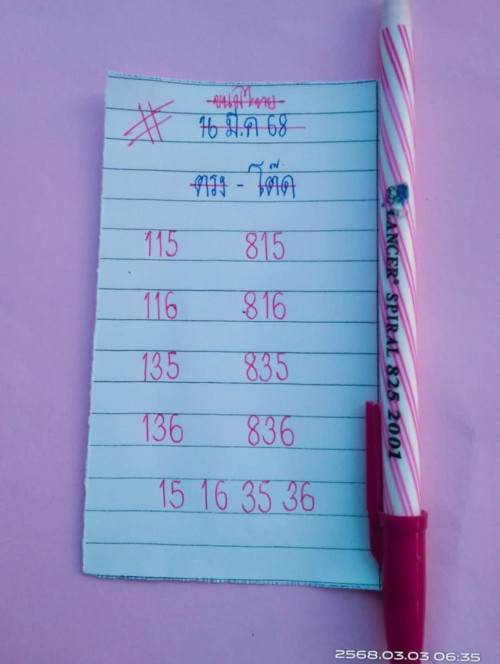 #
16 มี.ค 68
ตรง - โต๊ด
115 815
116 816
135 835
136 836
15 16 35 36
LANCER SPIRAL 825 2001
2568.03.03 06:35